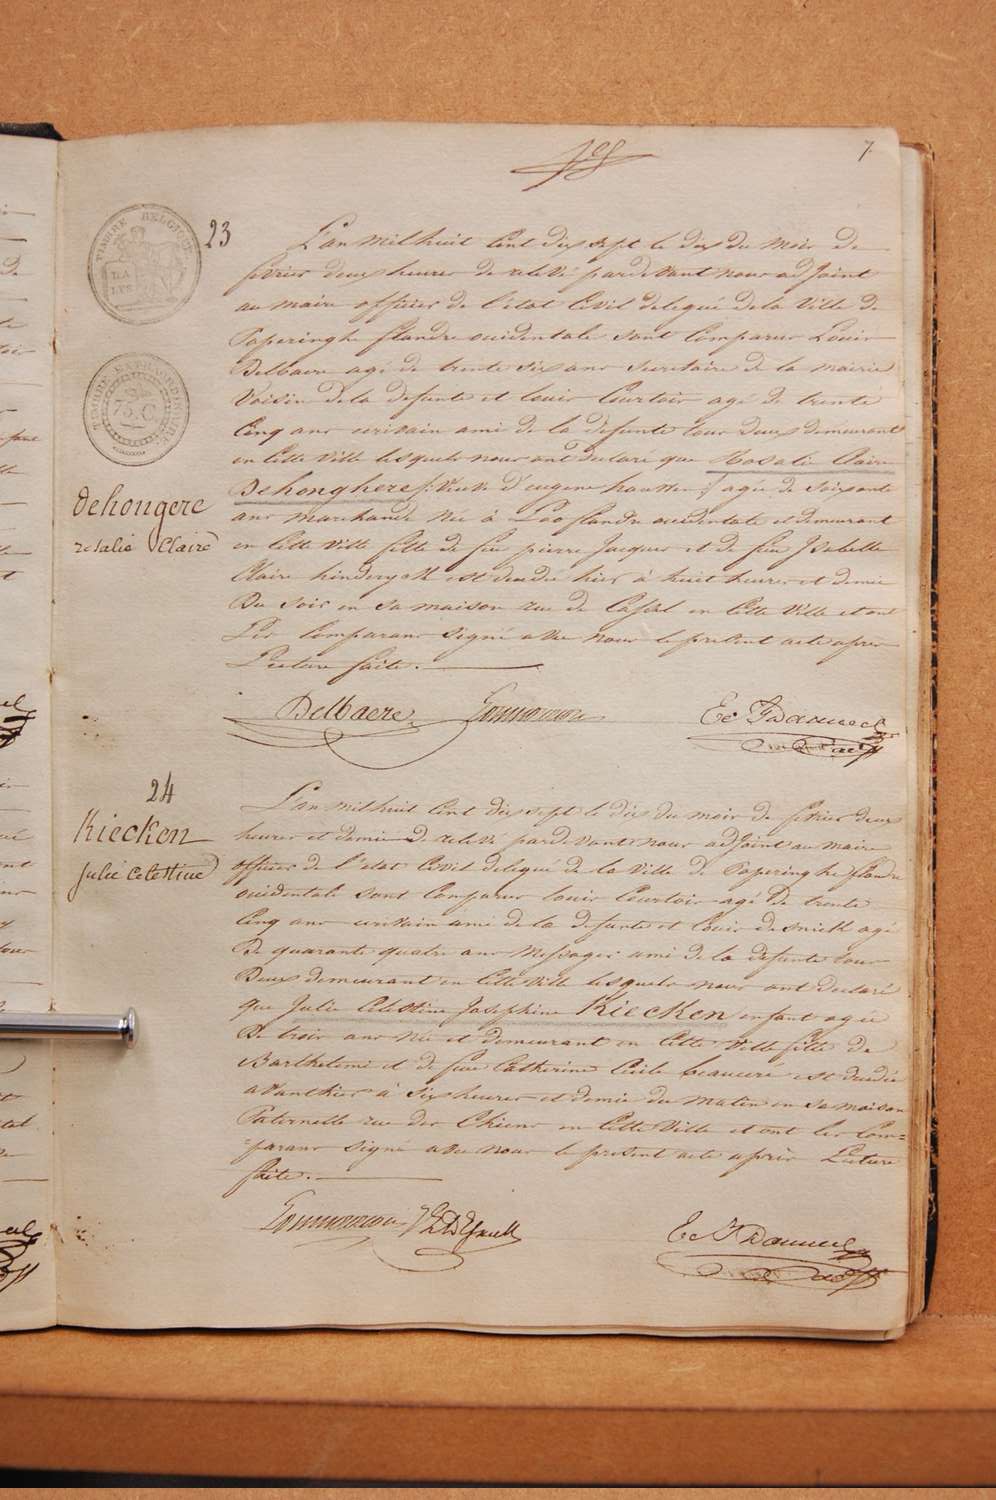 7
TIMBRE BELGIQUE
LA
LYS
23
L'an mil huit Cent dix sept le dix du mois de
fevrier deux heures de relevé pardevant nous adjoint
au maire officier de l'etat Civil delegué de la Ville de
Poperinghe flandre occidentale sont Comparus Louis
Delbaere agé de trente six ans Secretaire de la mairie
Voisin de la defunte et louis Courtois agé de trente
Cinq ans ecrivain ami de la defunte tous deux demeurant
en Cette Ville lesquels nous ont declaré que Rosalie Claire
Dehonghere (: Veuve d'eugene :) agée de Soixante
ans marchande Née à Loo flandre occidentale et demeurant
en Cette Ville fille de feu pierre Jacques et de feu Isabelle
Claire hinderyck est decedée hier à huit heures et demie
Du Soir en Sa maison rue de Cassel en Cette Ville et ont
Les Comparans Signé avec nous le present acte apres
Lecture faite.
TIMBRE EXTRAORDINAIRE
75 C
Dehongere
rosalie Claire
Delbaere
24
Kiecken
Julie Celestine
L'an mil huit Cent dix sept le dix du mois de fevrier deux
heures et demie de relevé pardevant nous adjoint au maire
officier de l'etat Civil delegué de la Ville de Poperinghe flandre
occidentale sont Comparus louis Courtois agé de trente
Cinq ans ecrivain ami de la defunte et louis desmidt agé
De quarante quatre ans Messager ami de la defunte tous
Deux demeurant en Cette Ville lesquels nous ont declaré
que Julie Celestine Josephine Kiecken enfant agée
De trois ans Née et demeurant en Cette Ville fille de
Barthelemi et de feue Catherine Cecile est decedée
avanthier à Six heures et demie du matin en Sa maison
Paternelle rue des Chiens en Cette Ville et ont les Com=
=parans Signé avec nous le present acte après Lecture
faite.